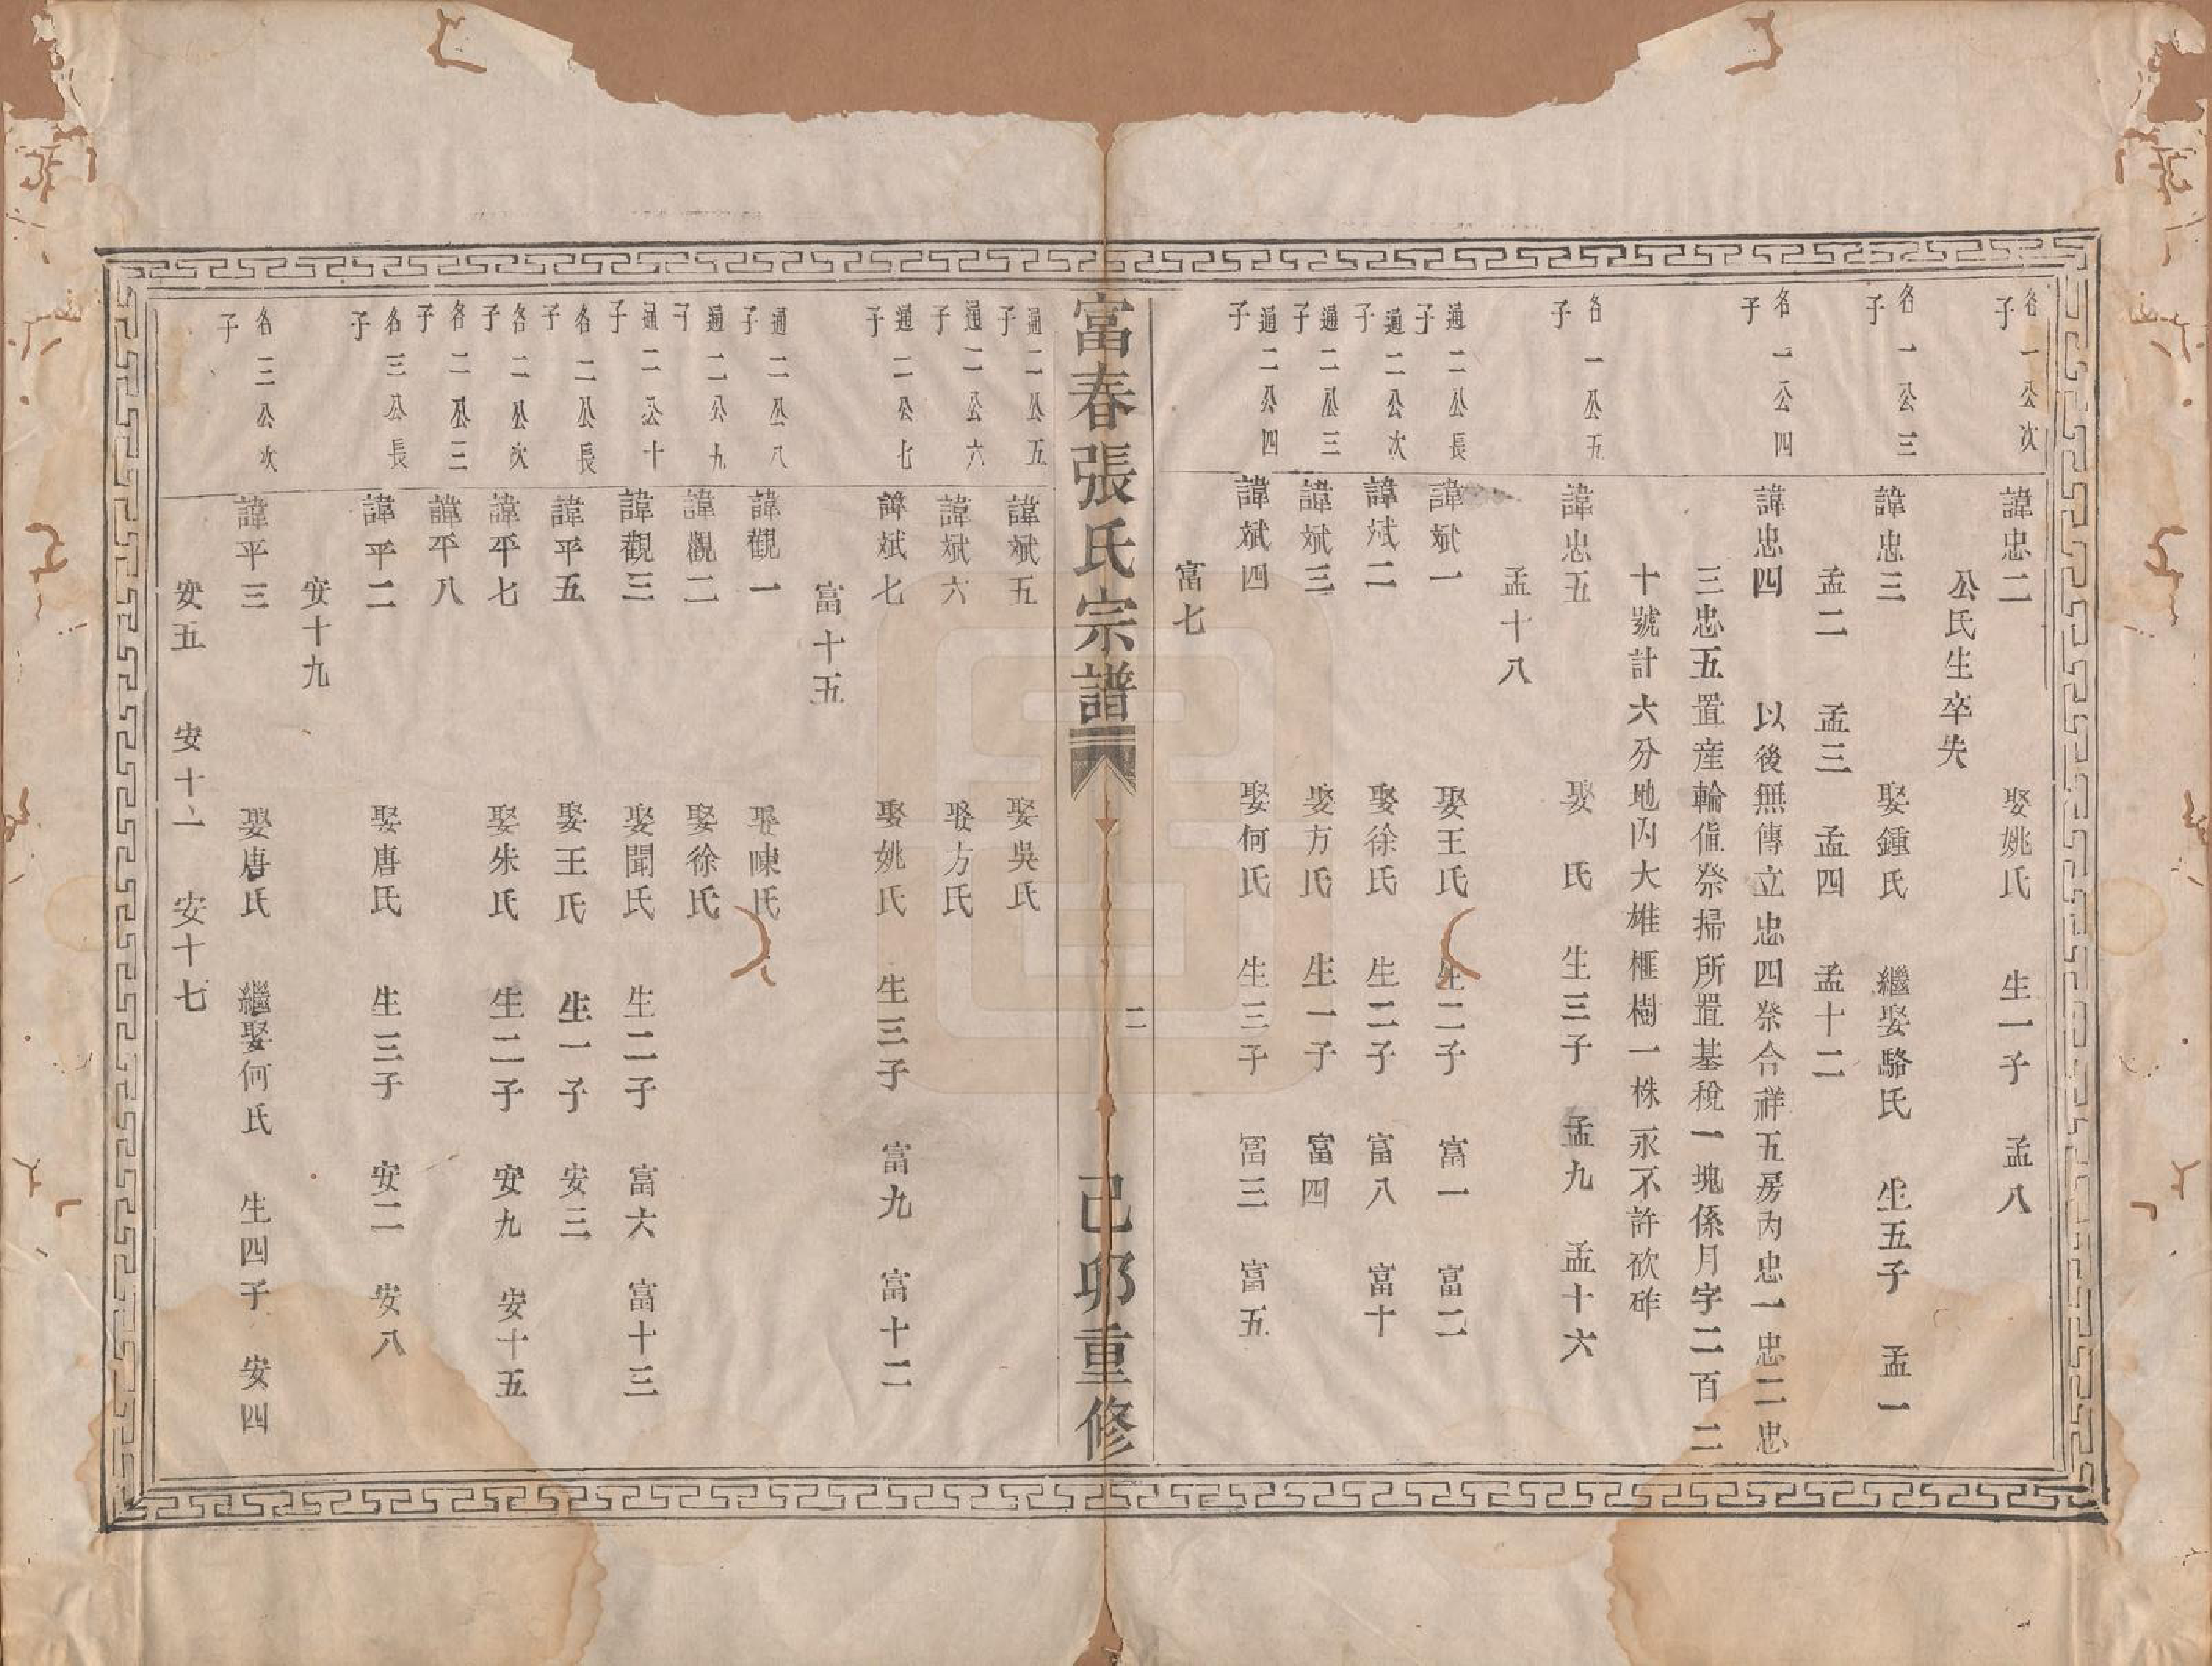 各一公次子　諱忠二　娶姚氏　生一子　孟八
公氏生卒失
各一公三子　諱忠三　娶鍾氏　繼娶駱氏　生五子　孟一
孟二　孟三　孟四　孟十二
各一公四子　諱忠四　以後無傳立忠四祭合祥五房內忠一忠二忠
三忠五置產輪值祭掃所置基稅一塊係月字二百二
十號計六分地內大雄榧樹一株永不許砍砟
各一公五子　諱忠五　娶　氏　生三子　孟九　孟十六
孟十八
通二公長子　諱斌一　娶王氏　生二子　富一　富二
通二公次子　諱斌二　娶徐氏　生二子　富八　富十
通二公三子　諱斌三　娶方氏　生一子　富四
通二公四子　諱斌四　娶何氏　生三子　富三　富五
富七
富春張氏宗譜　二　己卯重修
通二公五子　諱斌五　娶吳氏
通二公六子　諱斌六　娶方氏
通二公七子　諱斌七　娶姚氏　生三子　富九　富十二
富十五
通二公八子　諱觀一　娶陳氏
通二公九子　諱觀二　娶徐氏
通二公十子　諱觀三　娶聞氏　生二子　富六　富十三
各二公長子　諱平五　娶王氏　生一子　安三
各二公次子　諱平七　娶朱氏　生二子　安九　安十五
各二公三子　諱平八
各三公長子　諱平二　娶唐氏　生三子　安二　安八
安十九
各三公次子　諱平三　娶唐氏　繼娶何氏　生四子　安四
安五　安十一　安十七